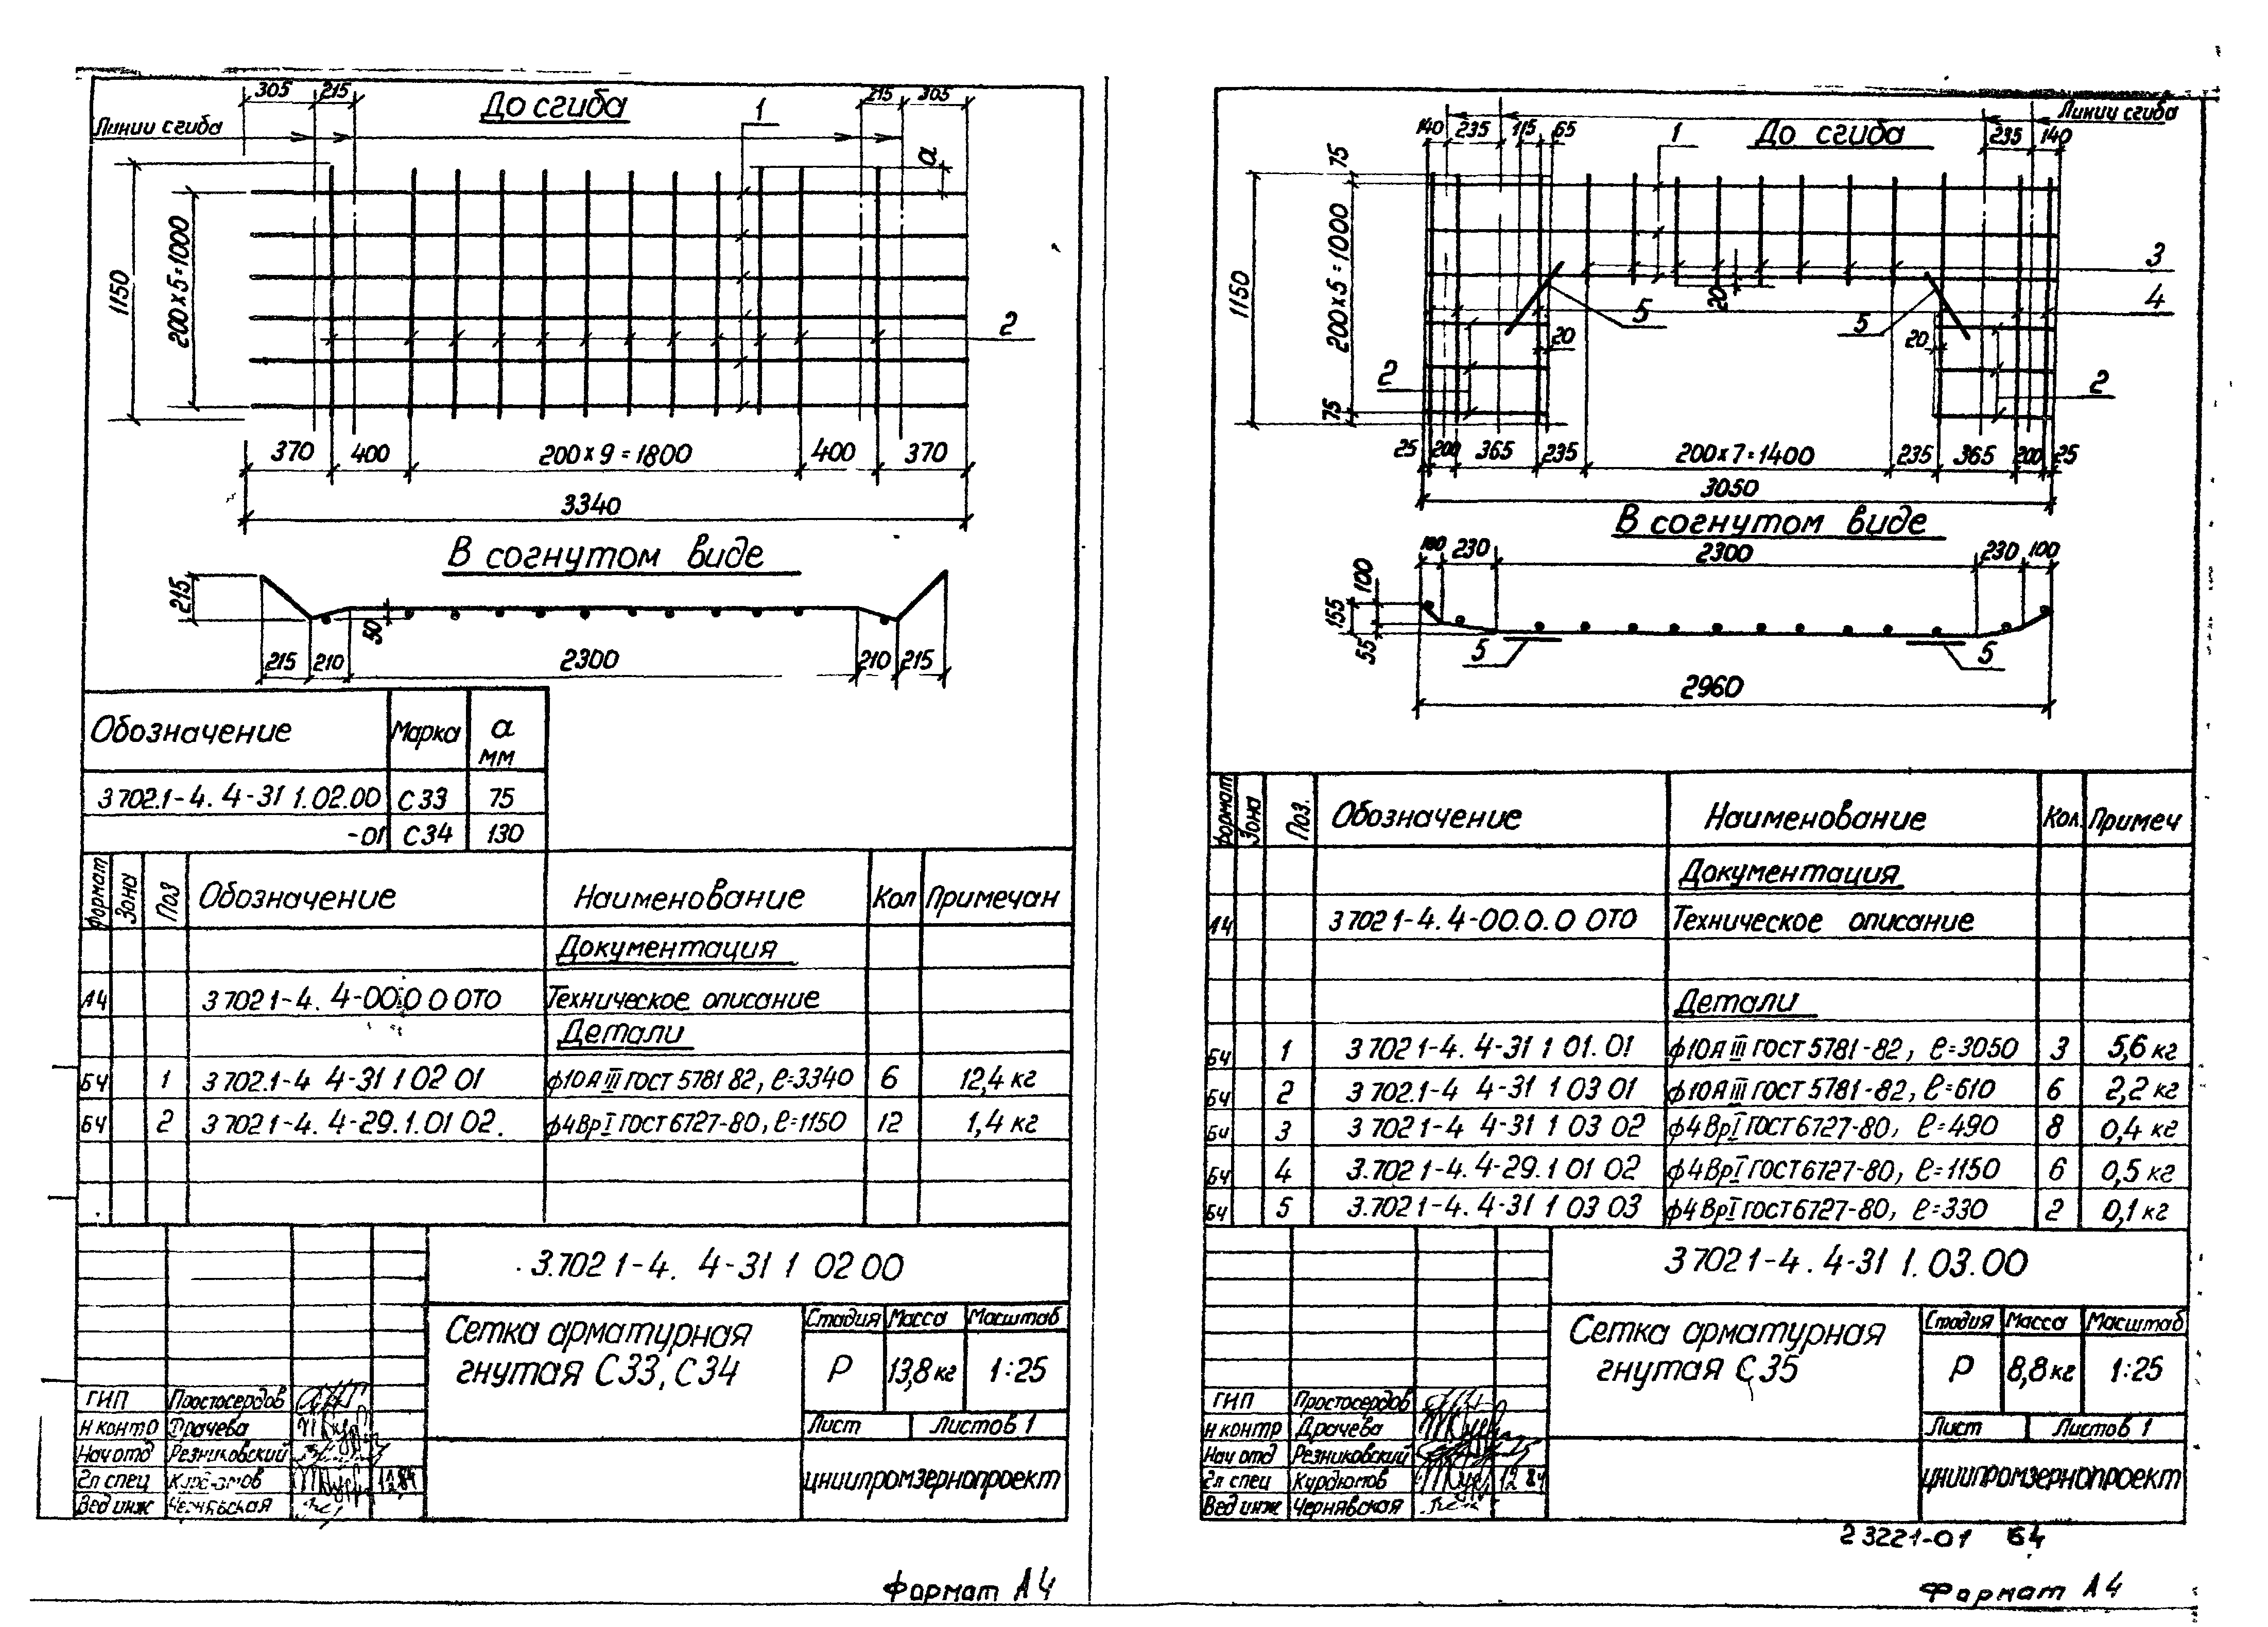 305 215 До сгиба 1 215 305
Линии сгиба
а
1150
200×5=1000
2
370 400 200×9=1800 400 370
3340
В согнутом виде
215
50
215 210 2300 210 215
Обозначение Марка а мм
3 702.1-4. 4-31 1.02.00 С33 75
-01 С34 130
Формат Зона Поз Обозначение Наименование Кол Примечан
Документация
А4 3 702 1-4. 4-00 0 0 0ТО Техническое описание
Детали
БЧ 1 3 702.1-4 4-31 1 02 01 ф10АIII ГОСТ 5781 82, ℓ=3340 6 12,4 кг
БЧ 2 3 702 1-4. 4-29.1.01 02. ф4ВрI ГОСТ 6727-80, ℓ=1150 12 1,4 кг
3.702 1-4. 4-31 1 02 00
Сетка арматурная
гнутая С33, С34
Стадия Масса Масштаб
Р 13,8 кг 1:25
Лист Листов 1
ГИП Простосердов
Н контр Драчева
Нач отд Резниковский
Гл спец Курдюмов 12.84
Вед инж Чернявская
ЦНИИПРОМЗЕРНОПРОЕКТ
Формат А4
Линии сгиба
140 235 115 65 1 До сгиба 235 140
75
1150
200×5=1000
75
3
4
5 20 5
20 20
2 2
25 200 365 235 200×7=1400 235 365 200 25
3050
В согнутом виде
100 230 2300 230 100
100
155
55
5 5
2960
Формат Зона Поз. Обозначение Наименование Кол. Примеч
Документация
А4 3 702 1-4. 4-00.0.0 0ТО Техническое описание
Детали
БЧ 1 3 702 1-4. 4-31 1 01.01 ф10АIII ГОСТ 5781-82, ℓ=3050 3 5,6 кг
БЧ 2 3 702.1-4 4-31 1 03 01 ф10АIII ГОСТ 5781-82, ℓ=610 6 2,2 кг
БЧ 3 3 702 1-4 4-31 1 03 02 ф4ВрI ГОСТ 6727-80, ℓ=490 8 0,4 кг
БЧ 4 3.702 1-4. 4-29.1 01 02 ф4ВрI ГОСТ 6727-80, ℓ=1150 6 0,5 кг
БЧ 5 3.702 1-4. 4-31 1 03 03 ф4ВрI ГОСТ 6727-80, ℓ=330 2 0,1 кг
3 702 1-4. 4-31 1.03.00
Сетка арматурная
гнутая С35
Стадия Масса Масштаб
Р 8,8 кг 1:25
Лист Листов 1
ГИП Простосердов
Н контр Драчева
Нач отд Резниковский
Гл спец Курдюмов 12 84
Вед инж Чернявская
ЦНИИПРОМЗЕРНОПРОЕКТ
23221-01 64
Формат А4